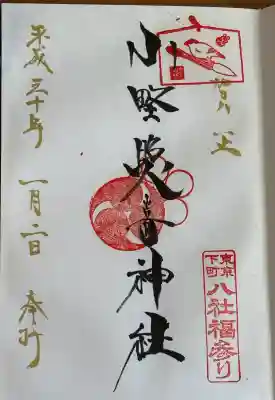 賀正
小野照崎神社
平成三十年 一月二日 奉拝
東京下町
八社福参り